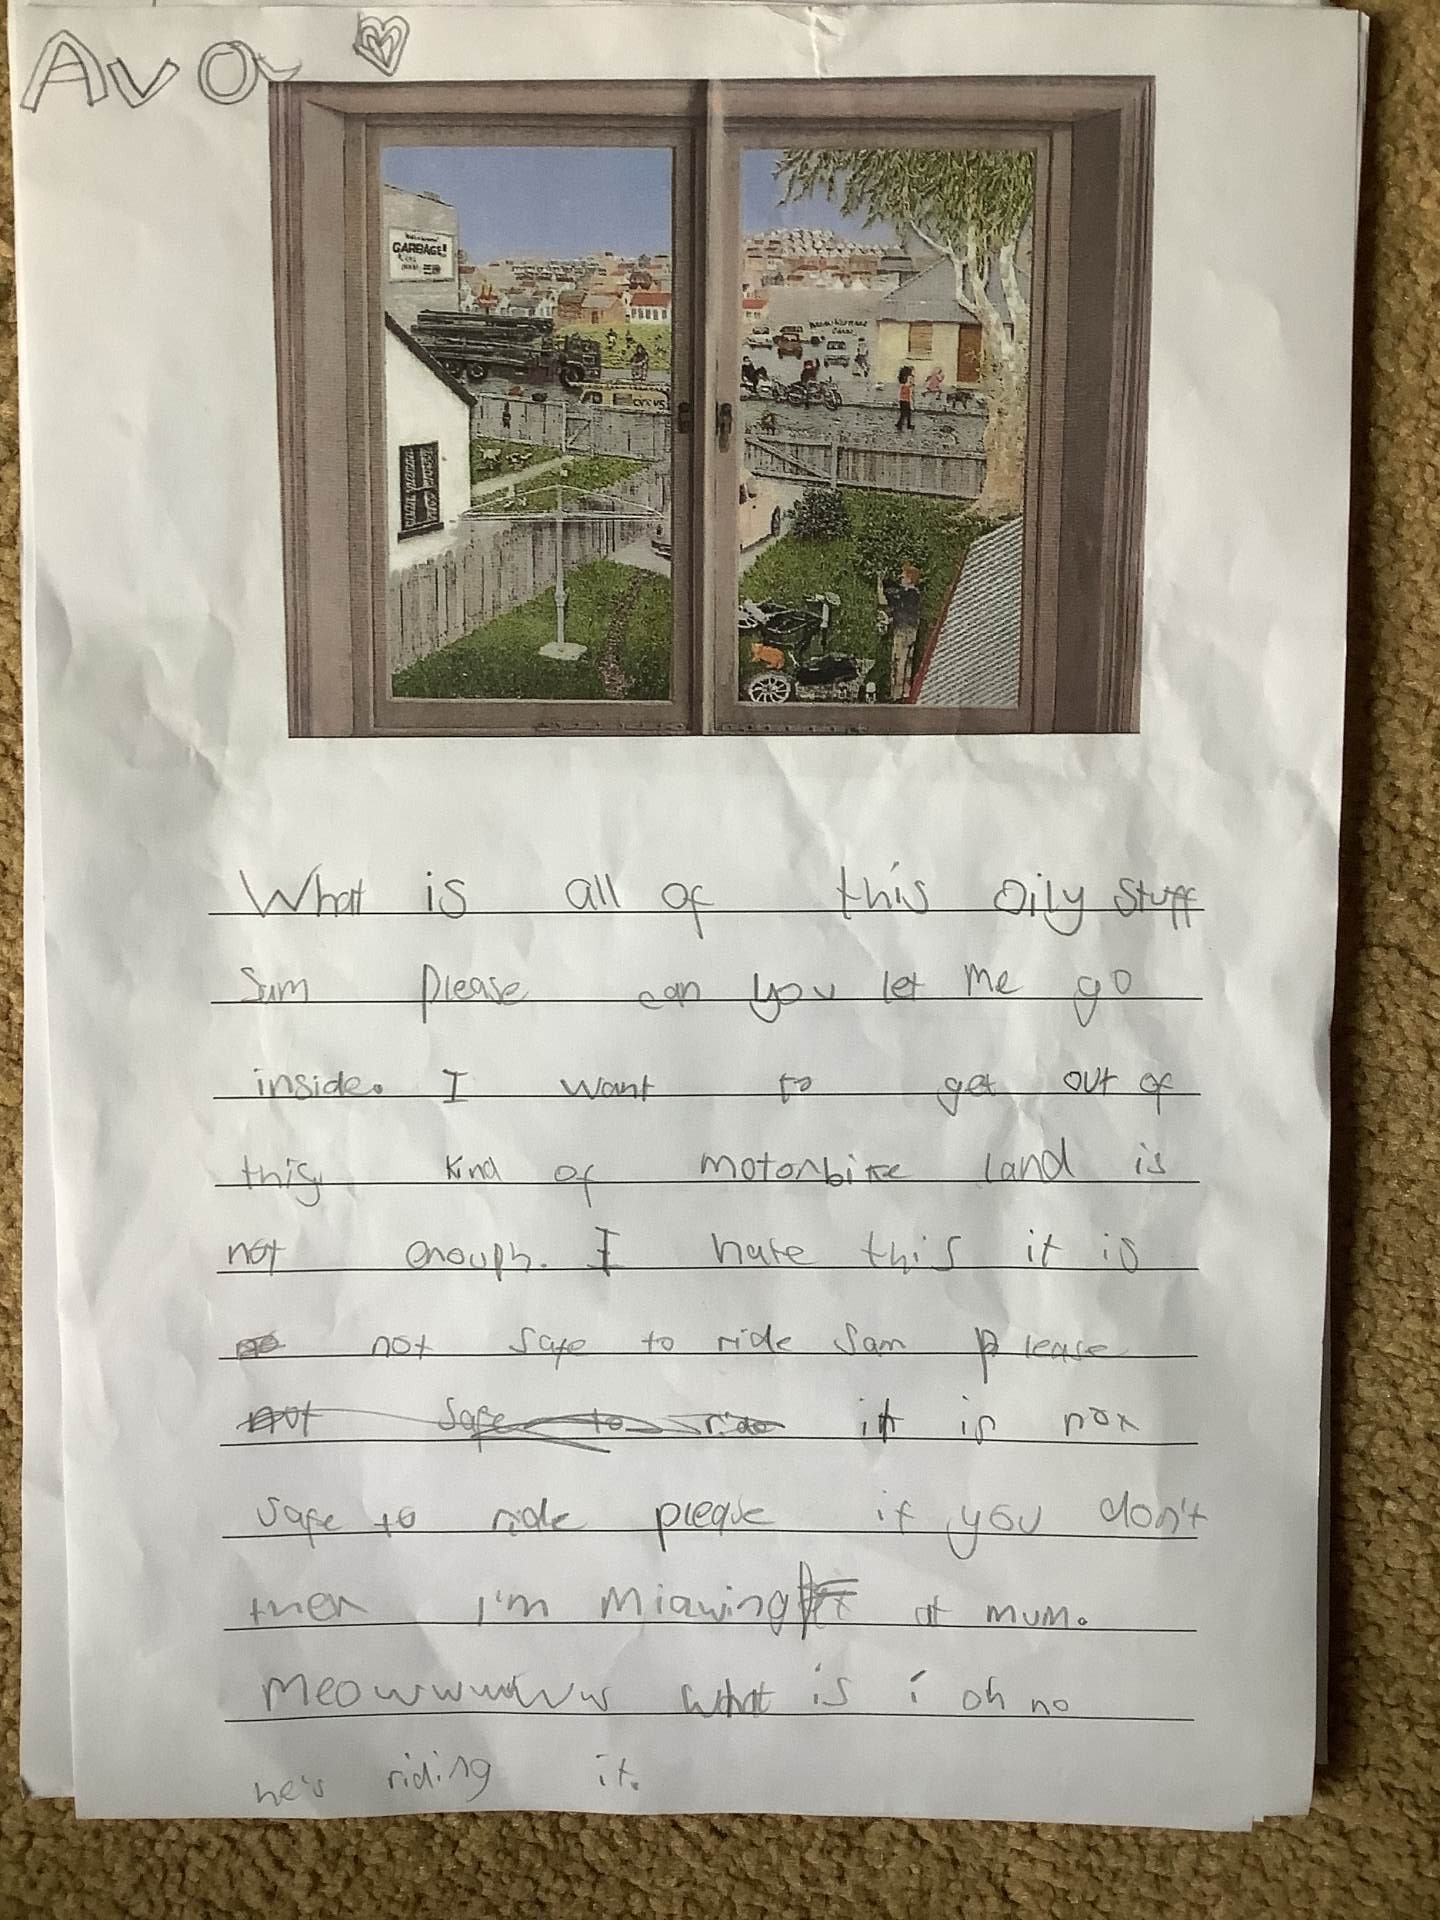 Ava
GARBAGE!
What is all of this oily stuff
Sam please can you let me go
inside. I want to get out of
this kind of motorbike land is
not enough. I hate this it is
not safe to ride Sam please
not safe to ride it is not
safe to ride please if you don't
then I'm Miawing at mum.
Meowwwwww what is i oh no
he's riding it.